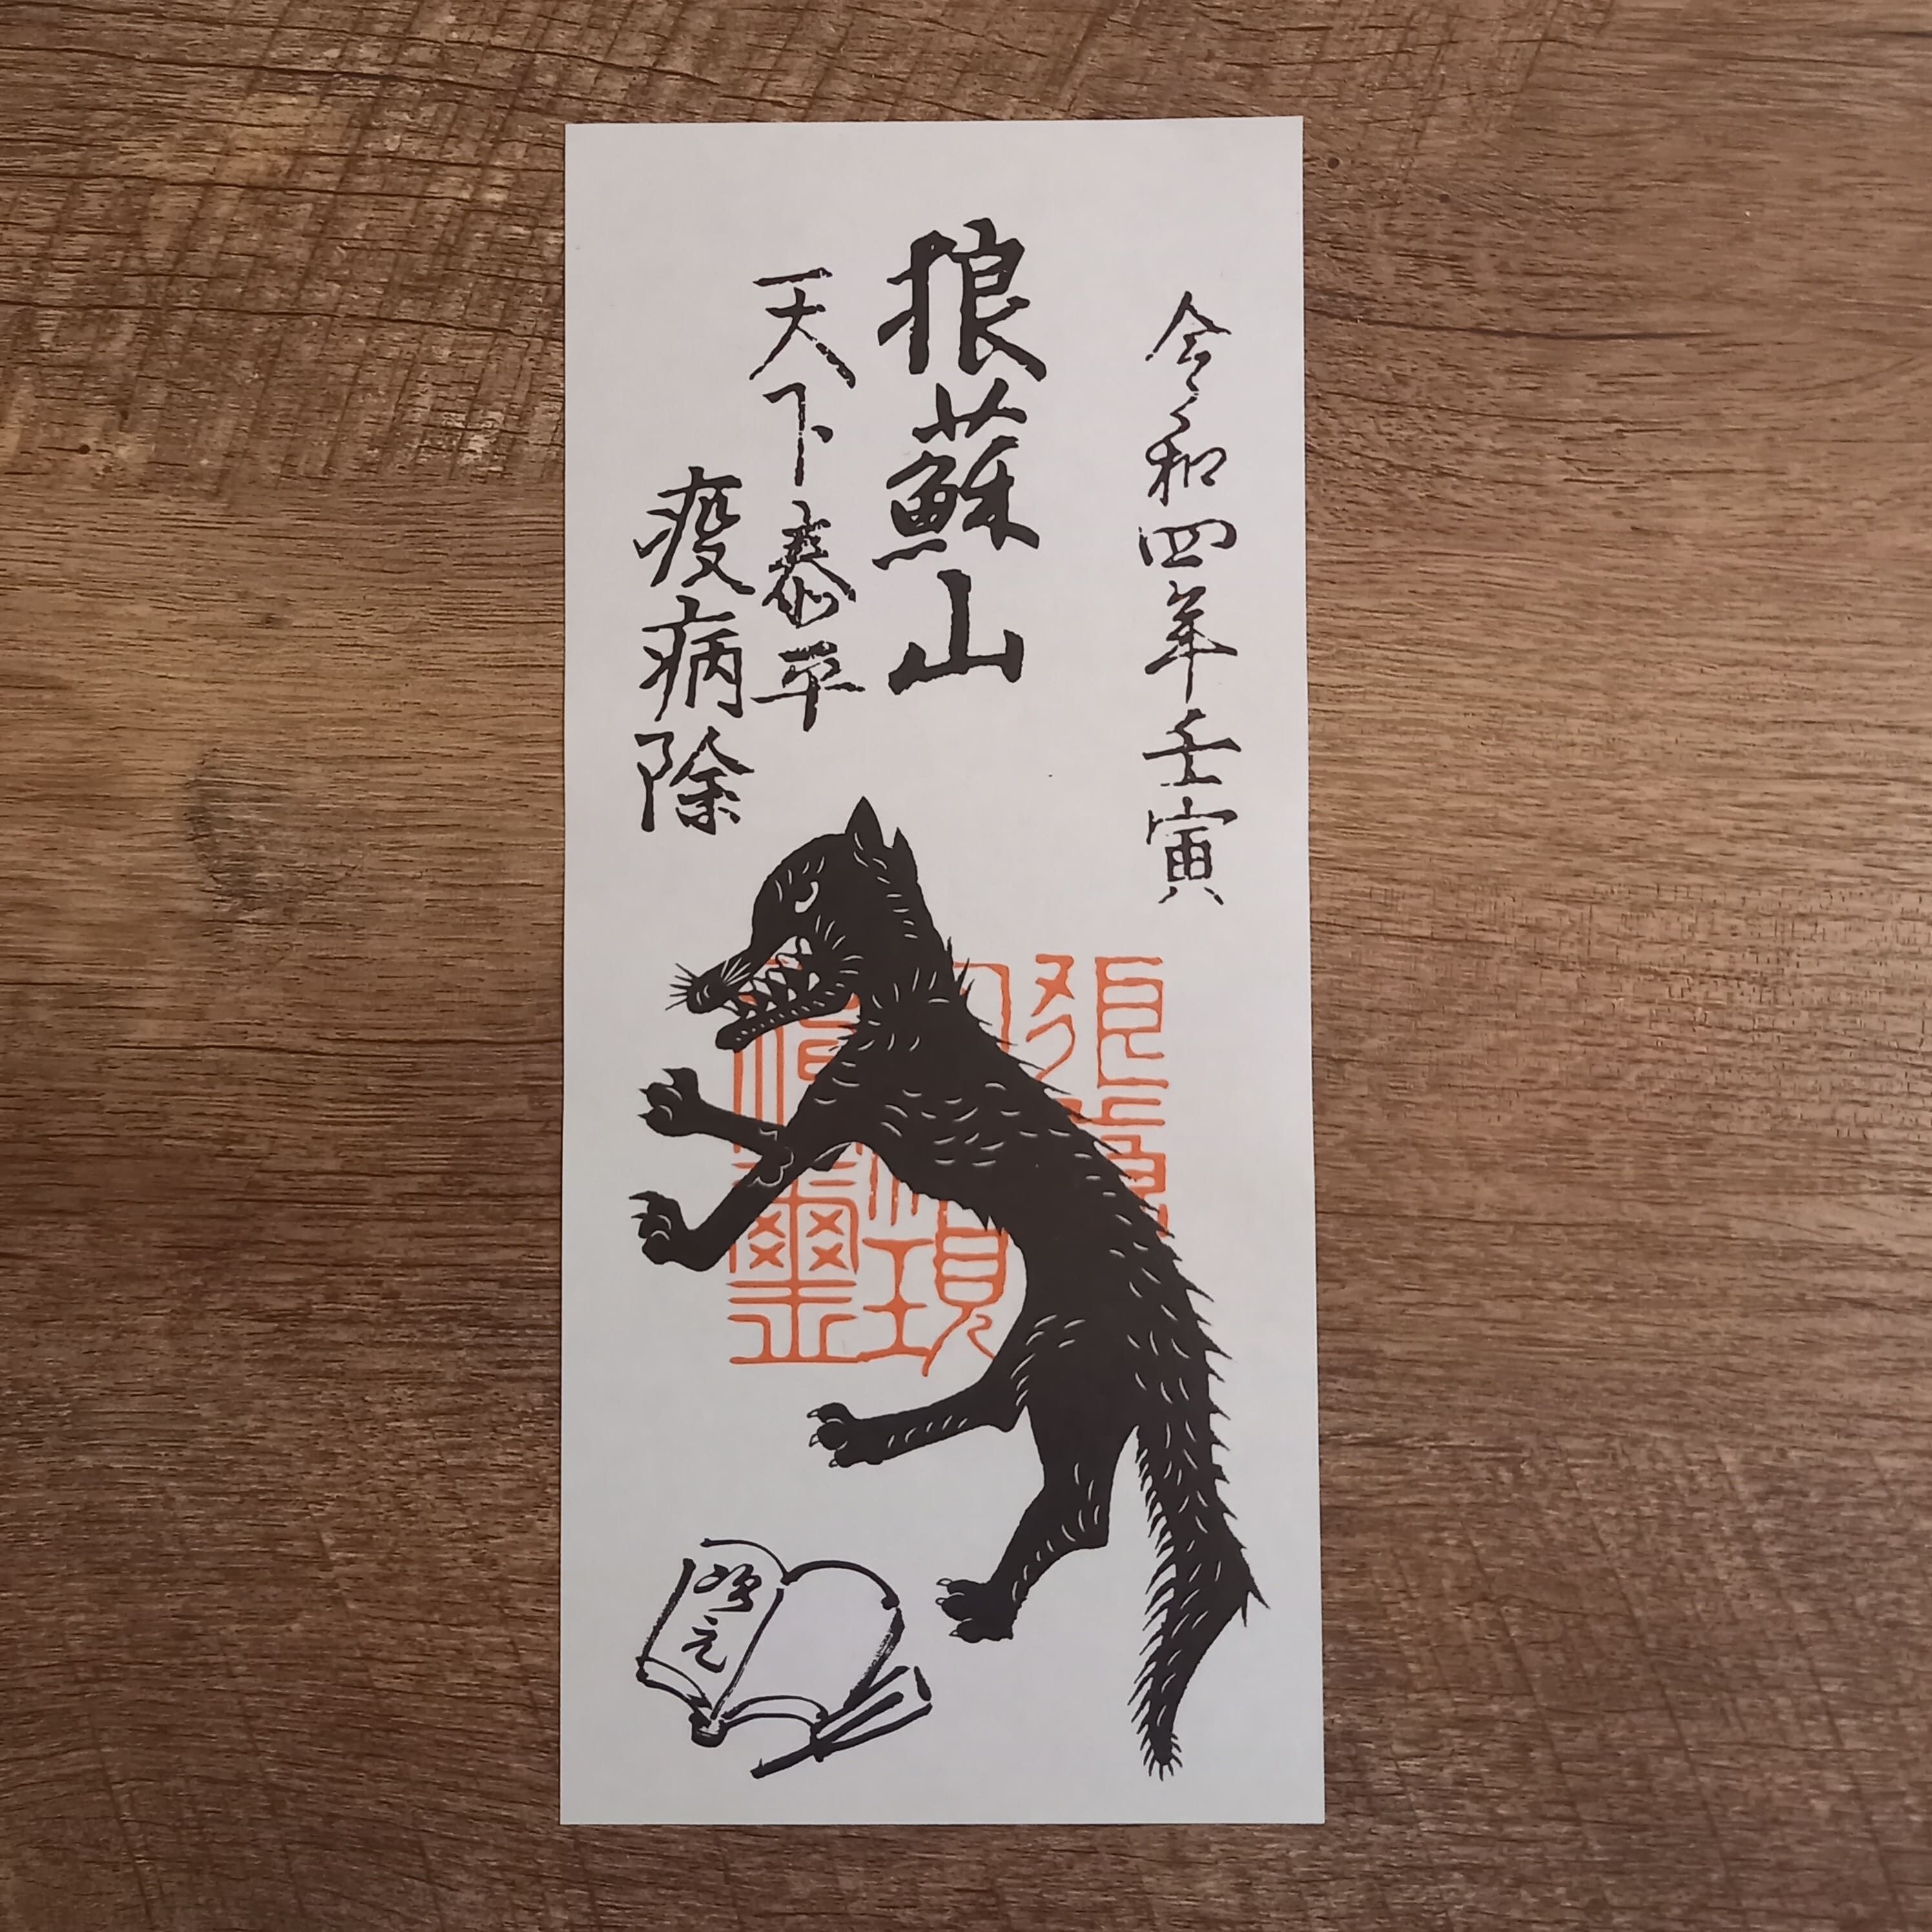 令和四年壬寅
狼蘇山
天下泰平
疫病除